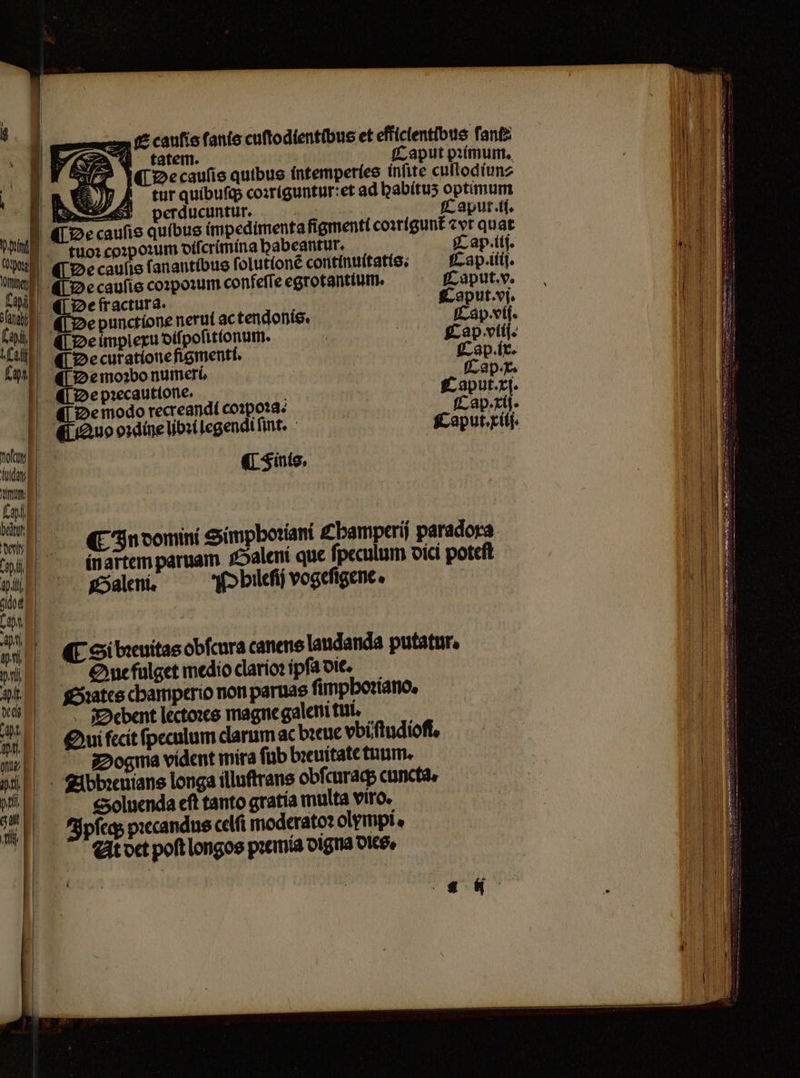 E cauſis ſanis cuſtodientibus et efficientibus ſani⸗
tatem. Caput primum.
¶ De cauſis quibus intemperies inſite cuſtodiun⸗
tur quibuſqꝫ corriguntur: et ad habituꝫ optimum
perducuntur. Caput.ij.
¶ De cauſis quibus impedimenta figmenti corrigunt̃ ⁊ vt quat
tuor corporum diſcrimina habeantur. Cap.iij.
¶ De cauſis ſanantibus ſolutionẽ continuitatis. Cap.iiij.
¶ De cauſis corporum confeſſe egrotantium. Caput.v.
¶ De fractura. Caput.vj.
¶ De punctione nerui ac tendonis. Cap.vij.
¶ De implexu diſpoſitionum. Cap.viij.
¶ De curatione figmenti. Cap.ix.
¶ De morbo numeri. Cap.x.
¶ De precautione. Caput.xj.
¶ De modo recreandi corpora. Cap.xij.
¶ Quo ordine libri legendi ſint. Caput.xiij.
¶ Finis.
¶ In domini Simphoriani Champerij paradoxa
in artem paruam Galeni que ſpeculum dici poteſt
Galeni. Philesij vogeſigene.
¶ Si breuitas obſcura canens laudanda putatur.
Que fulget medio clarior ipſa die.
Grates champerio non paruas ſimphoriano.
Debent lectores magne galeni tui.
Qui fecit ſpeculum clarum ac breue vbi ſtudioſi.
Dogma vident mira ſub breuitate tuum.
Abbreuians longa illuſtrans obſcuraqꝫ cuncta.
Soluenda eſt tanto gratia multa viro.
Ipſeqꝫ precandus celſi moderator olympi.
Ut det poſt longos premia digna dies.
a ij